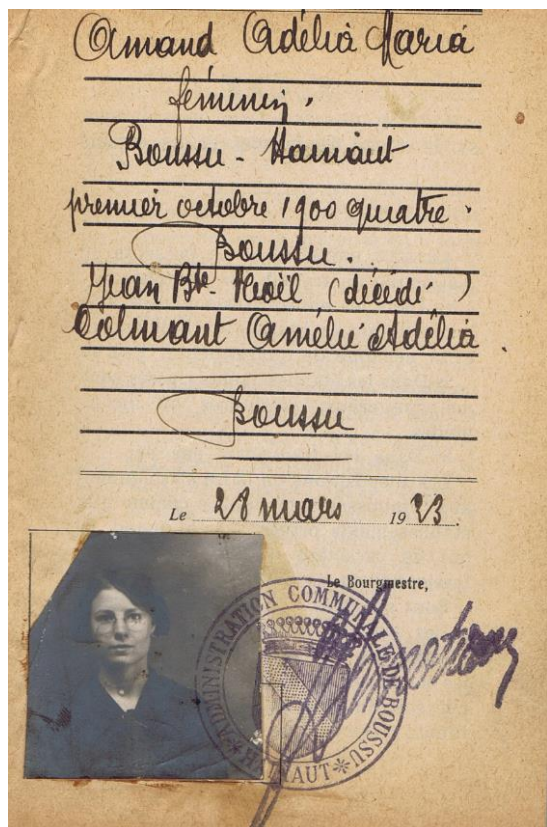 Amand Adélia Maria
féminin.
Boussu - Hainaut
premier octobre 1900 quatre.
Boussu.
Jean Bte- Noël (décédé)
Colmant Amélie Adélia
Boussu
Le 28 mars 1923.
Le Bourgmestre,
ADMINISTRATION COMMUNALE DE BOUSSU
HAINAUT